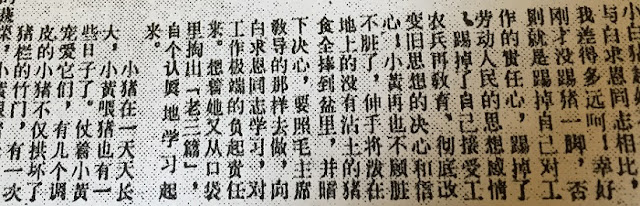 小白猪
与白求恩同志相比，
我差得多远呵！幸好
刚才没踢猪一脚，否
则就是踢掉自己对工
作的责任心，踢掉了
劳动人民的思想感情
，踢掉了自己接受工
农兵再教育，彻底改
变旧思想的决心和信
心！小黄再也不顾脏
不脏了，伸手将泼在
地上的没有沾土的猪
食全捧到盆里，并暗
下决心，要照毛主席
教导的那样去做，向
白求恩同志学习，对
工作极端的负起责任
来。想着她又从口袋
里掏出「老三篇」，
自个认真地学习起
来。
小猪在一天天长
大，小黄喂猪也有一
些日子了。仗着小黄
宠爱它们，有几个调
皮的小猪不仅拱坏了
猪栏的竹门，有一次
菜，小